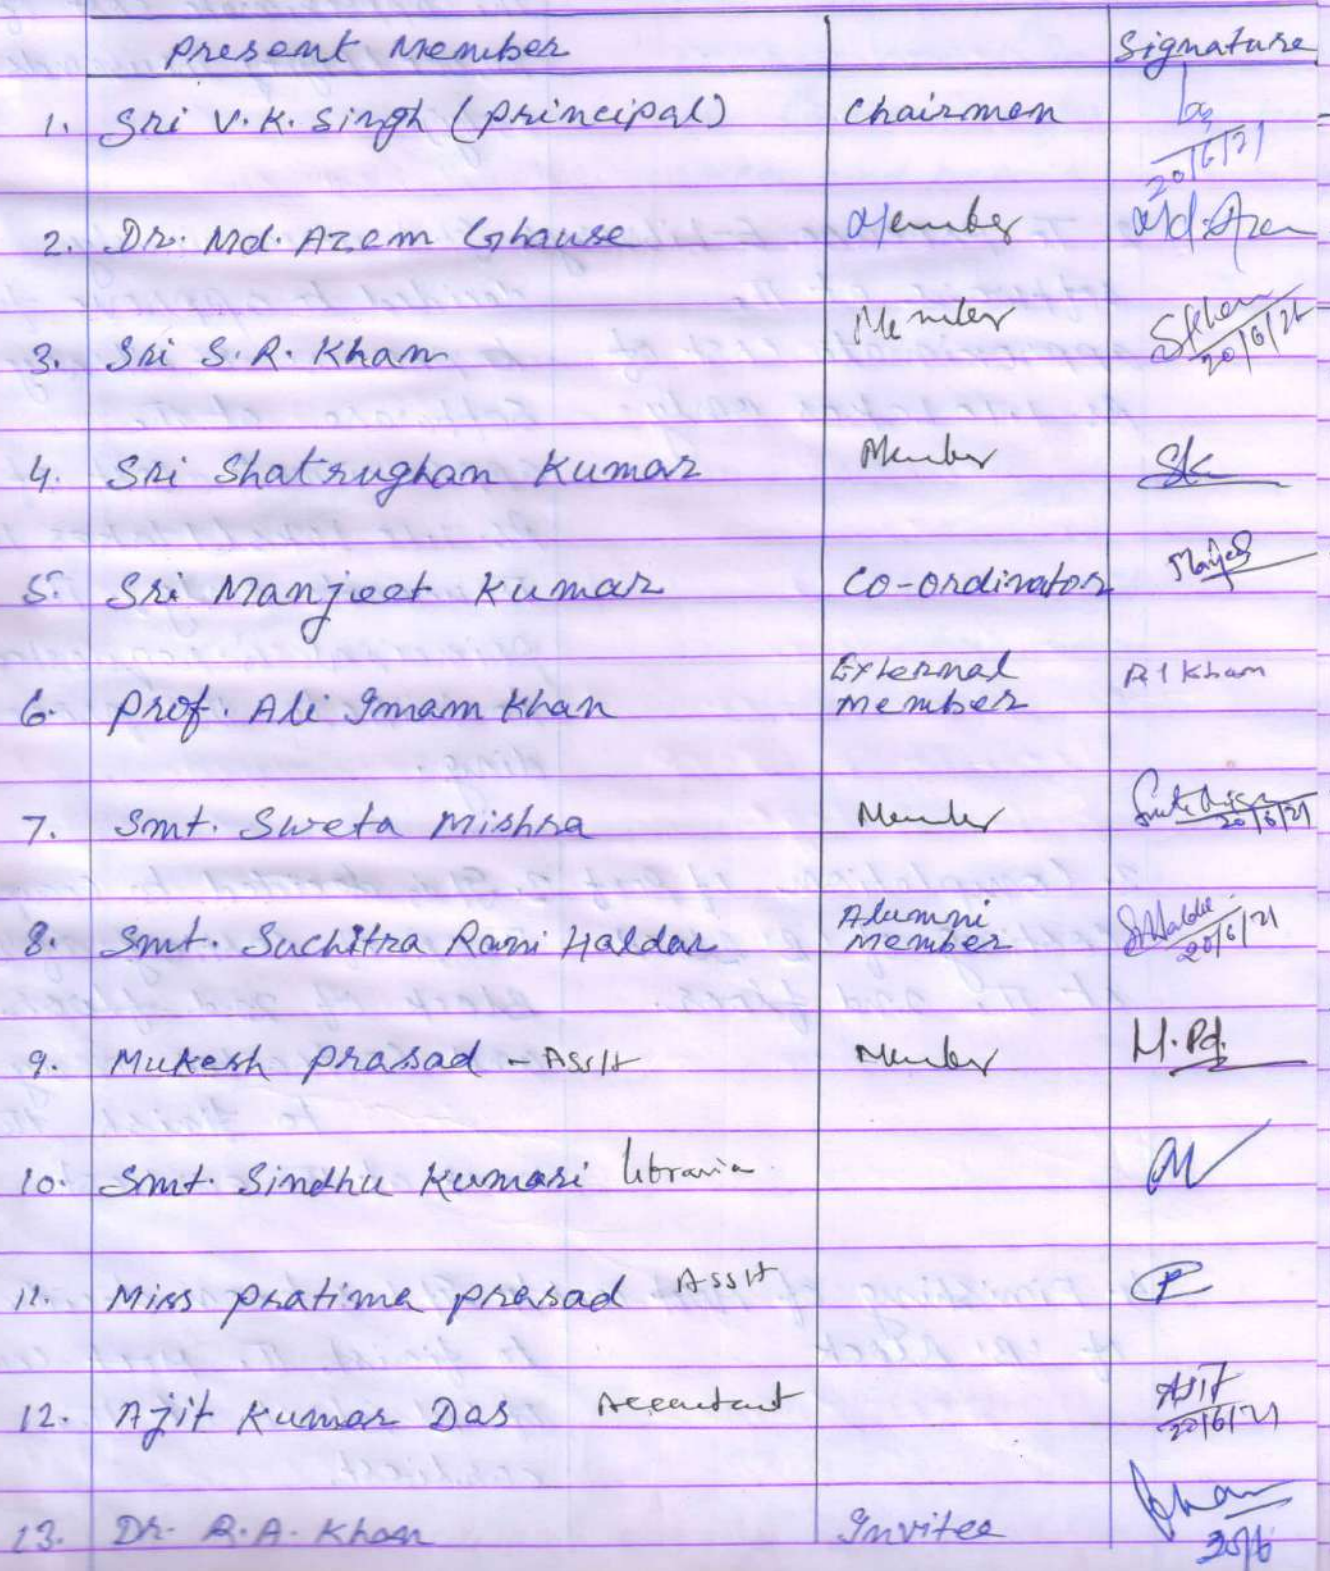 Present Member Signature
1. Sri V.K. Singh (Principal) Chairman
20/6/21
2. Dr. Md. Azam Ghause Member Md. Azam
3. Sri S.R. Khan Member SRKhan
20/6/21
4. Sri Shatrughan Kumar Member SK
5. Sri Manjeet Kumar Co-ordinator Manjeet
6. Prof. Ali Imam Khan External Member A I Khan
7. Smt. Sweta Mishra Member
20/6/21
8. Smt. Suchitra Rani Haldar Alumni Member SRHaldar
20/6/21
9. Mukesh Prasad - Asstt Member M. Pd.
10. Smt. Sindhu Kumari libraria
11. Miss Pratima Prasad Asstt P
12. Ajit Kumar Das Accountant Ajit
20/6/21
13. Dr. R.A. Khan Invitee Khan
20/6